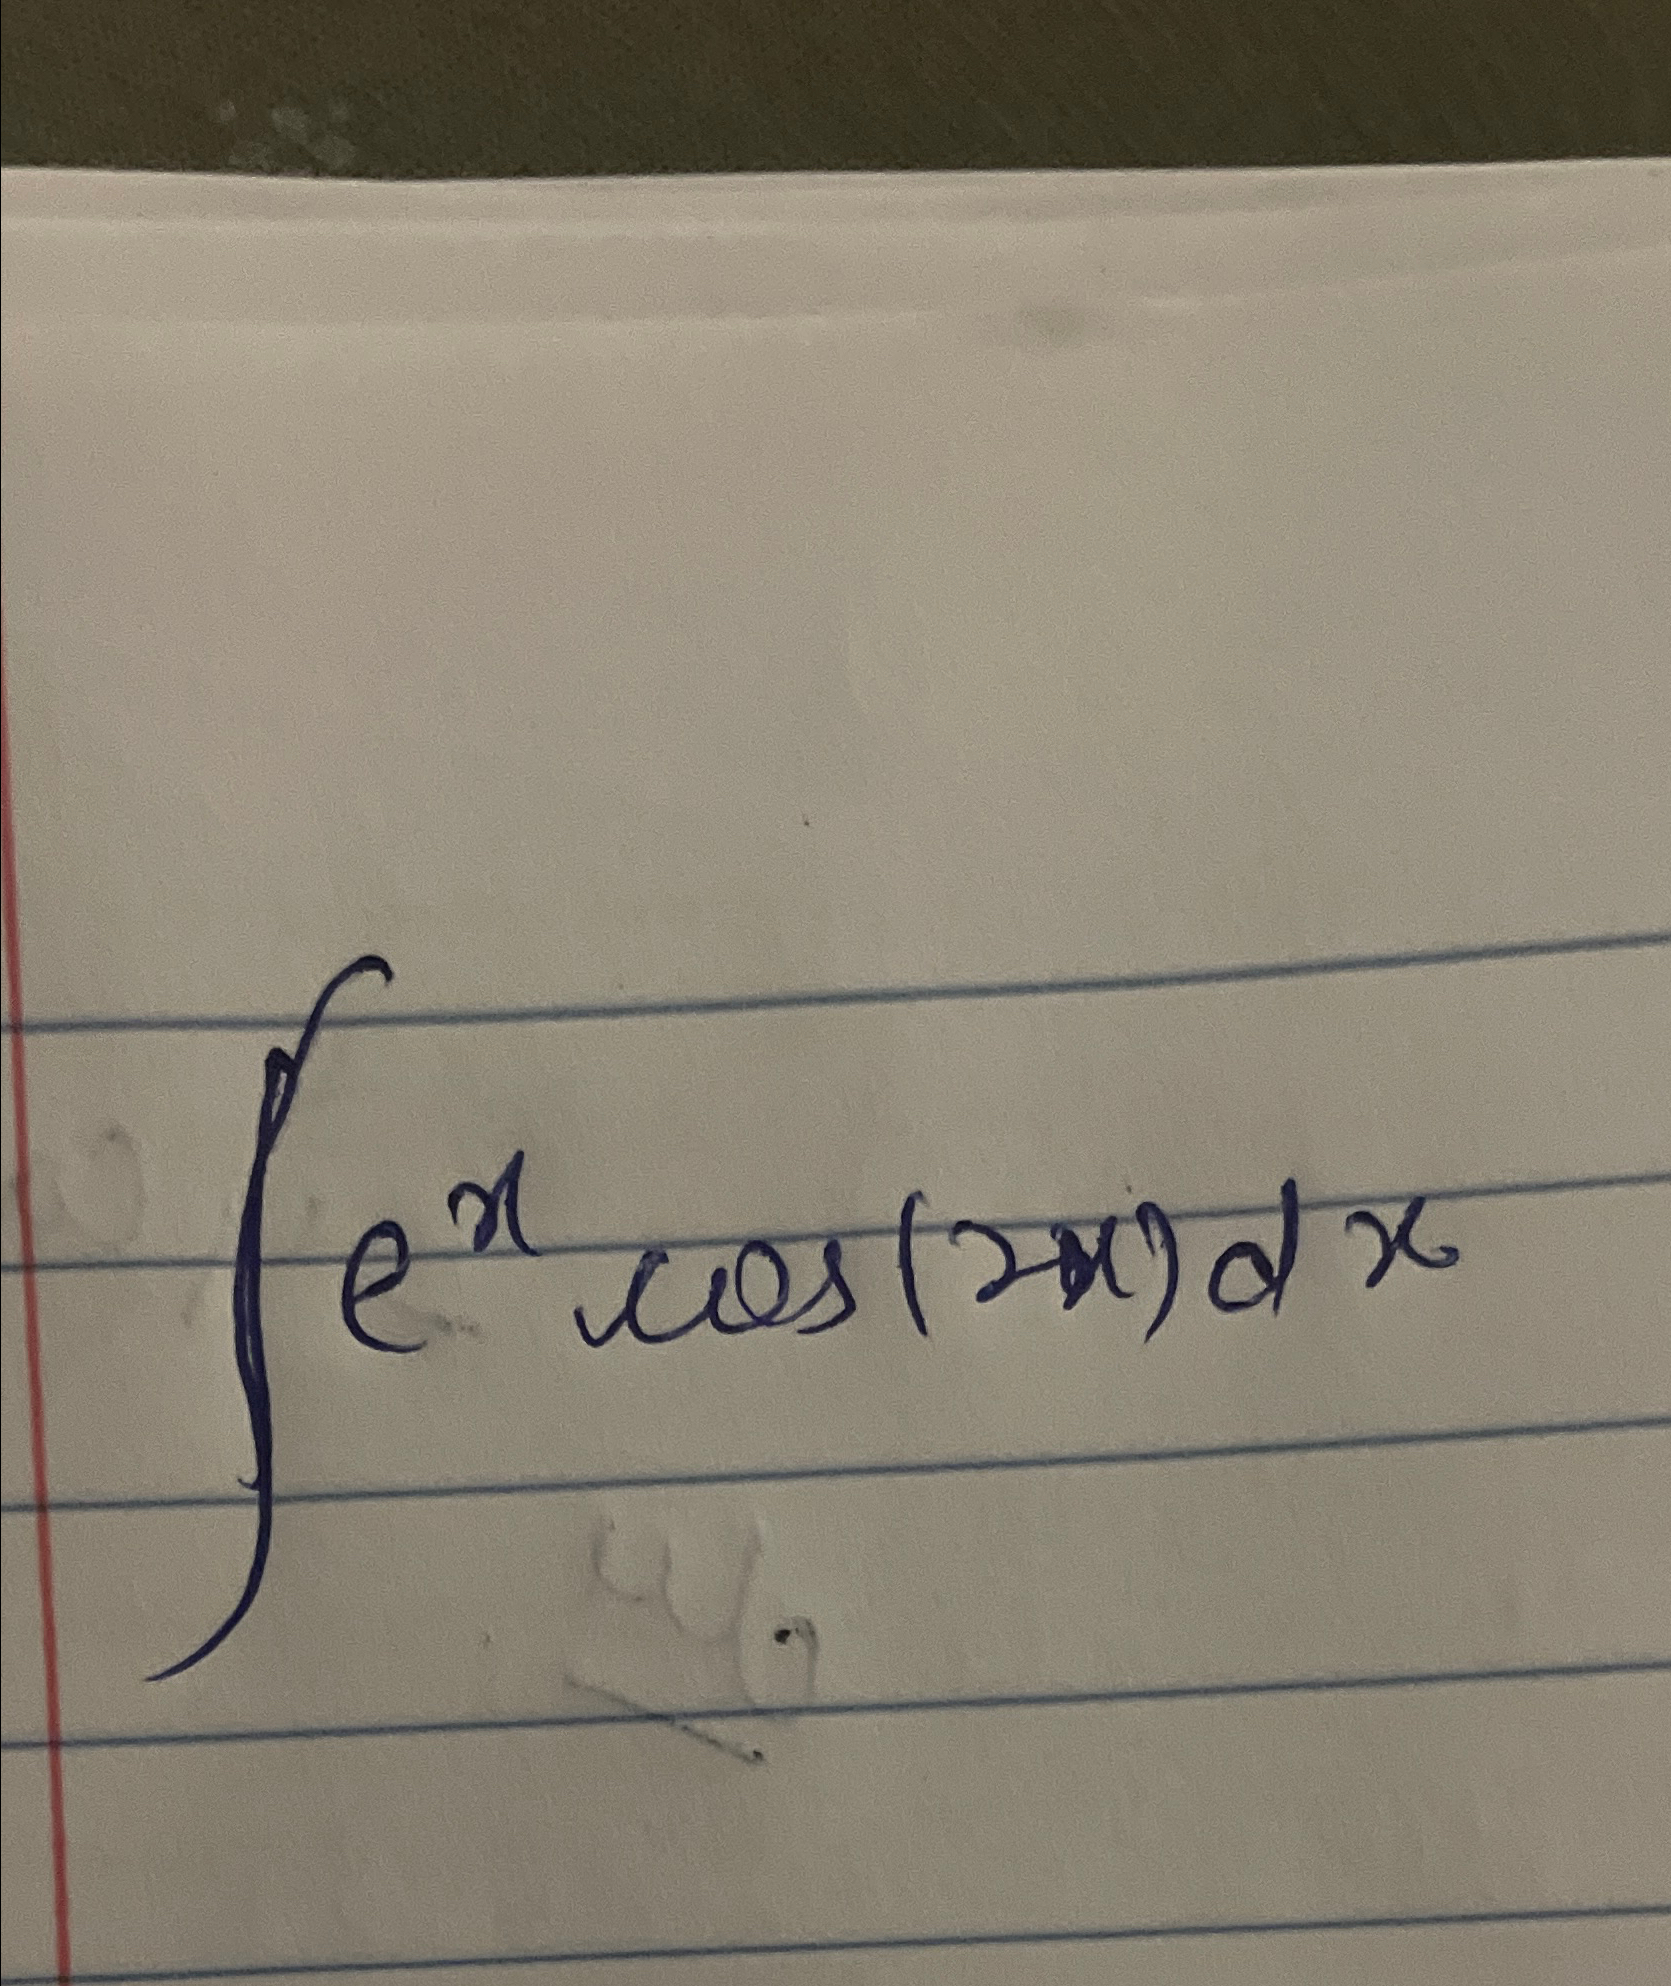 ∫ e^x cos(2x) dx